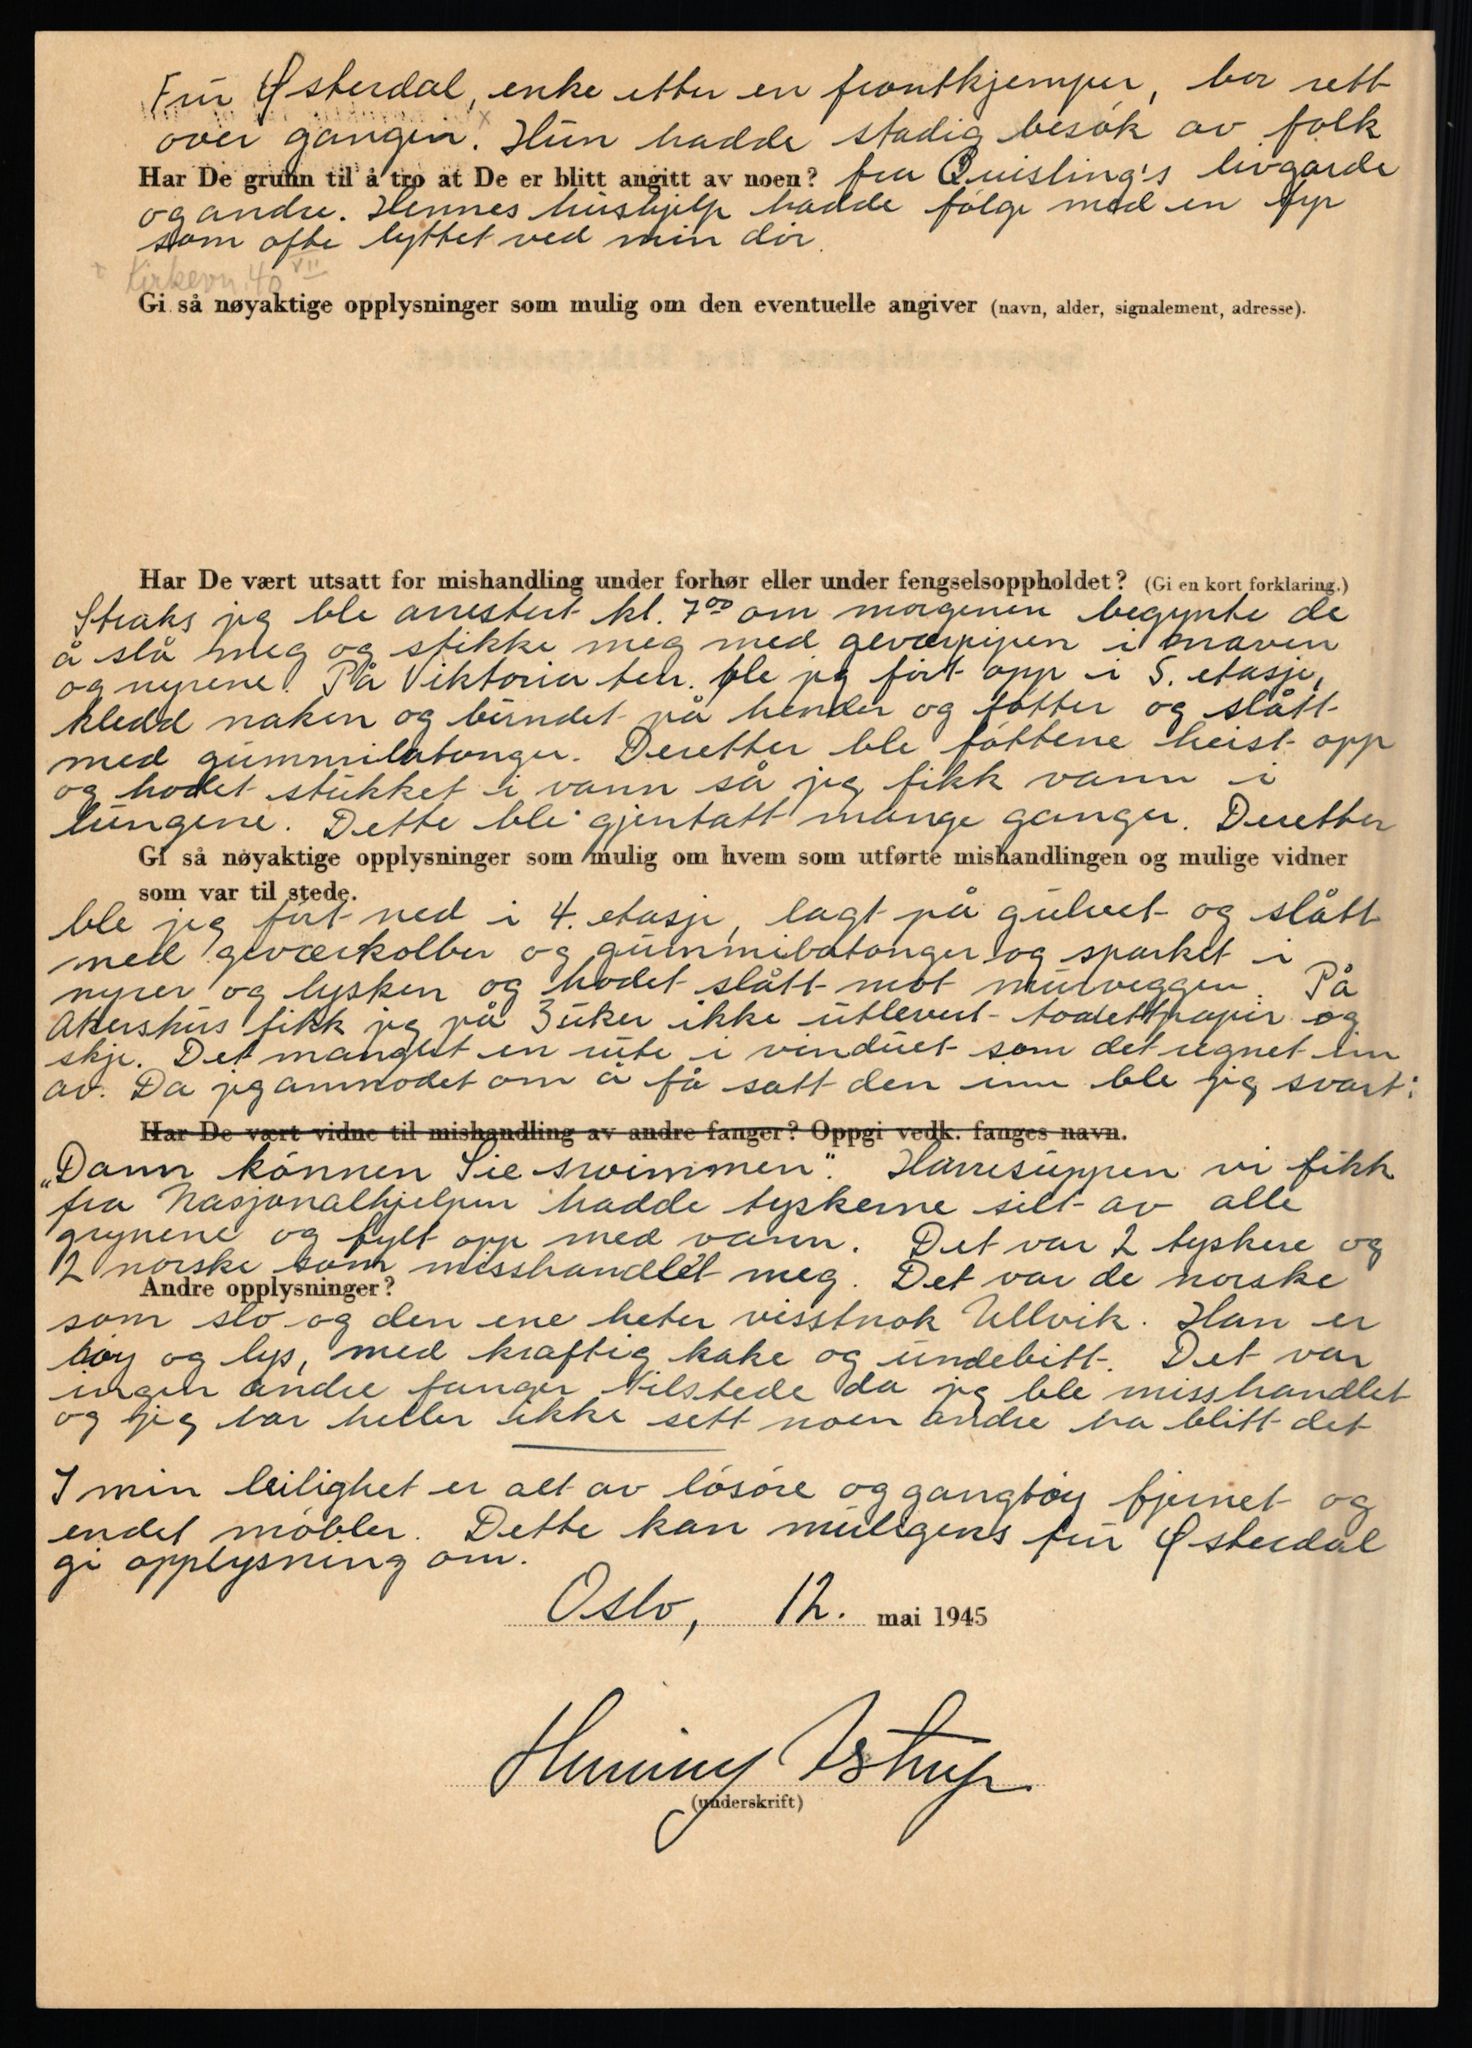 Fru Østerdal, enke etter en frontkjemper, bor rett
over gangen.x Hun hadde stadig besøk av folk
Har De grunn til å tro at De er blitt angitt av noen? fra Quisling's livgarde
og andre. Hennes hushjelp hadde følge med en fyr
som ofte lyttet ved min dør.
x Kirkevn. 40 VII
Gi så nøyaktige opplysninger som mulig om den eventuelle angiver (navn, alder, signalement, adresse).
Har De vært utsatt for mishandling under forhør eller under fengselsoppholdet? (Gi en kort forklaring.)
Straks jeg ble arrestert kl. 7⁰⁰ om morgenen begynte de
å slå meg og stikke meg med geværpipen i maven
og nyrene. På Viktoria ter. ble jeg ført opp i 5. etasje,
kledd naken og bundet på hender og føtter og slått
med gummibatonger. Deretter ble føttene heist opp
og hodet stukket i vann så jeg fikk vann i
lungene. Dette ble gjentatt mange ganger. Deretter
Gi så nøyaktige opplysninger som mulig om hvem som utførte mishandlingen og mulige vidner
som var til stede.
ble jeg ført ned i 4. etasje, lagt på gulvet og slått
med geværkolber og gummibatonger og sparket i
nyrer og lysken og hodet slått mot murveggen. På
Akershus fikk jeg på 3 uker ikke utlevert toalettpapir og
skje. Det manglet en rute i vinduet som det regnet inn
av. Da jeg anmodet om å få satt den inn ble jeg svart:
Har De vært vidne til mishandling av andre fanger? Oppgi vedk. fanges navn.
„Dann können Sie swimmen". Havresuppen vi fikk
fra Nasjonalhjelpen hadde tyskerne silt av alle
grynene og fylt opp med vann. Det var 2 tyskere og
2 norske som misshandlet meg. Det var de norske
Andre opplysninger?
som slo og den ene heter visstnok Ullvik. Han er
høy og lys, med kraftig kake og underbitt. Det var
ingen andre fanger tilstede da jeg ble misshandlet
og jeg har heller ikke sett noen andre ha blitt det
I min leilighet er alt av løsøre og gangtøy fjernet og
endel møbler. Dette kan muligens fru Østerdal
gi opplysning om.
Oslo, 12. mai 1945
Henning Astrup
(underskrift)